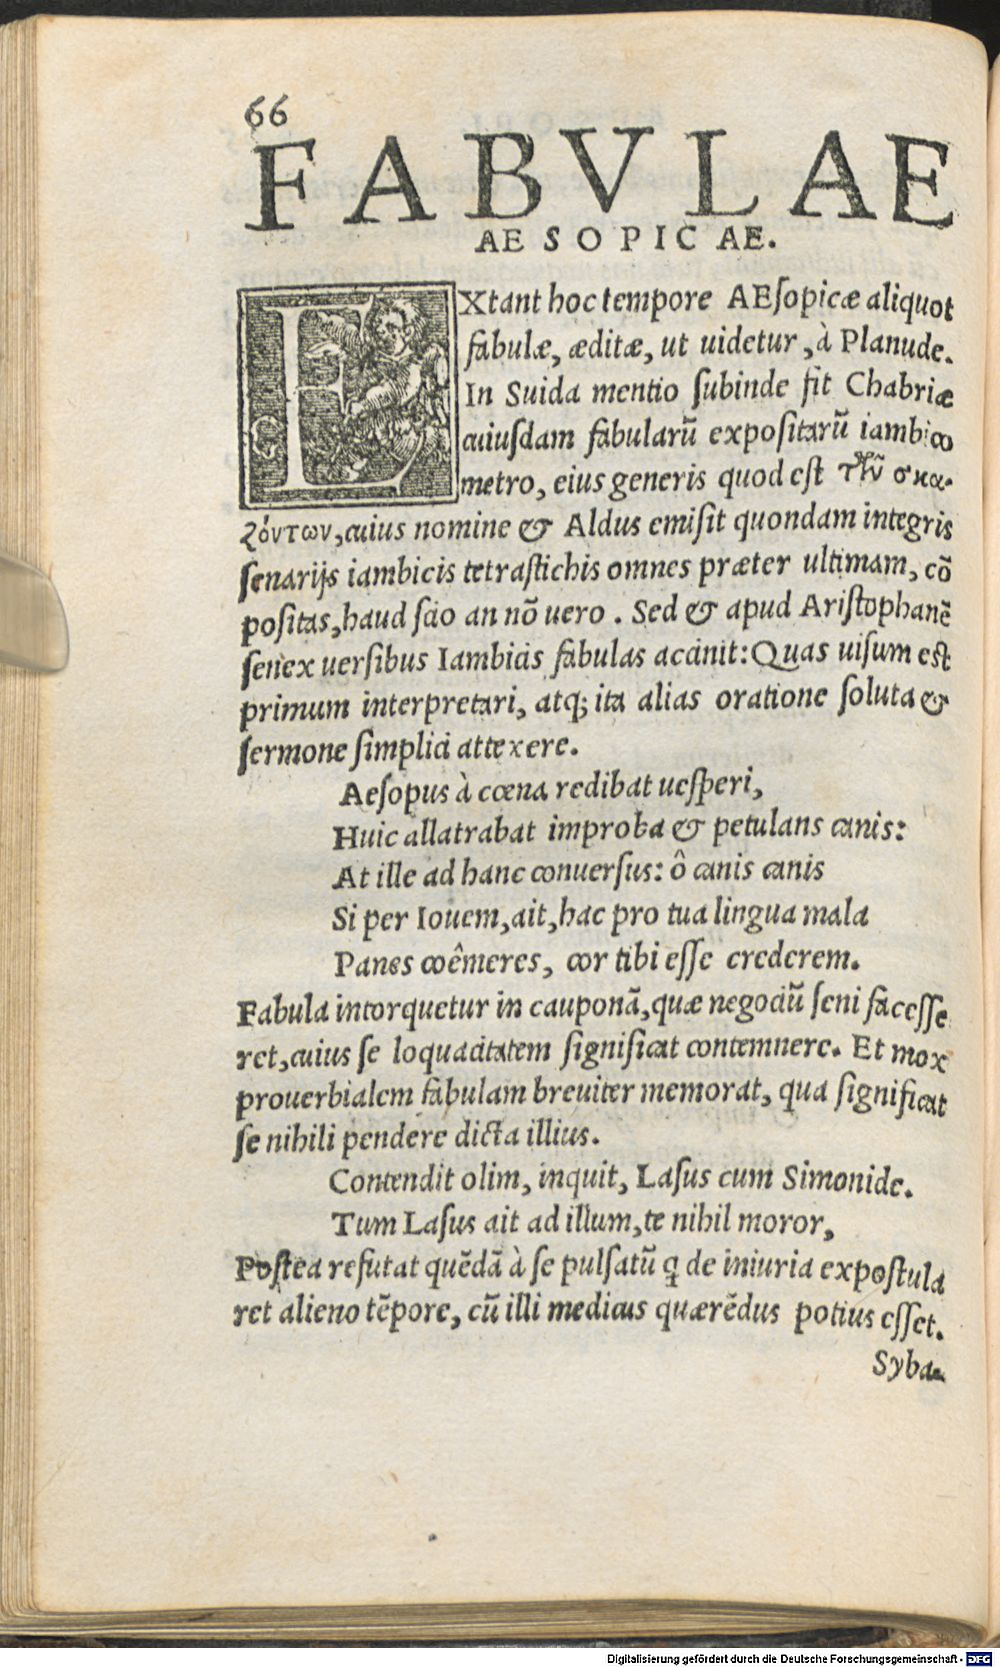 66
FABVLAE
AESOPICAE.
EXtant hoc tempore AEsopicæ aliquot
fabulæ, æditæ, ut uidetur, à Planude.
In Suida mentio subinde fit Chabriæ
cuiusdam fabularũ expositarũ iambico
metro, eius generis quod est τῶν σκα-
ζόντων, cuius nomine & Aldus emisit quondam integris
senarijs iambicis tetrastichis omnes præter ultimam, cõ
positas, haud scio an nõ uero. Sed & apud Aristophanẽ
senex uersibus Iambicis fabulas accinit: Quas uisum est
primum interpretari, atq; ita alias oratione soluta &
sermone simplici attexere.
Aesopus à cœna redibat uesperi,
Huic allatrabat improba & petulans canis:
At ille ad hanc conuersus: ô canis canis
Si per Iouem, ait, hac pro tua lingua mala
Panes coêmeres, cor tibi esse crederem.
Fabula intorquetur in cauponã, quæ negociũ seni facesse
ret, cuius se loquacitatem significat contemnere. Et mox
prouerbialem fabulam breuiter memorat, qua significat
se nihili pendere dicta illius.
Contendit olim, inquit, Lasus cum Simonide.
Tum Lasus ait ad illum, te nihil moror,
Postea refutat quẽdã à se pulsatũ q̃ de iniuria expostula
ret alieno tẽpore, cũ illi medicus quærẽdus potius esset.
Syba-
Digitalisierung gefördert durch die Deutsche Forschungsgemeinschaft - DFG